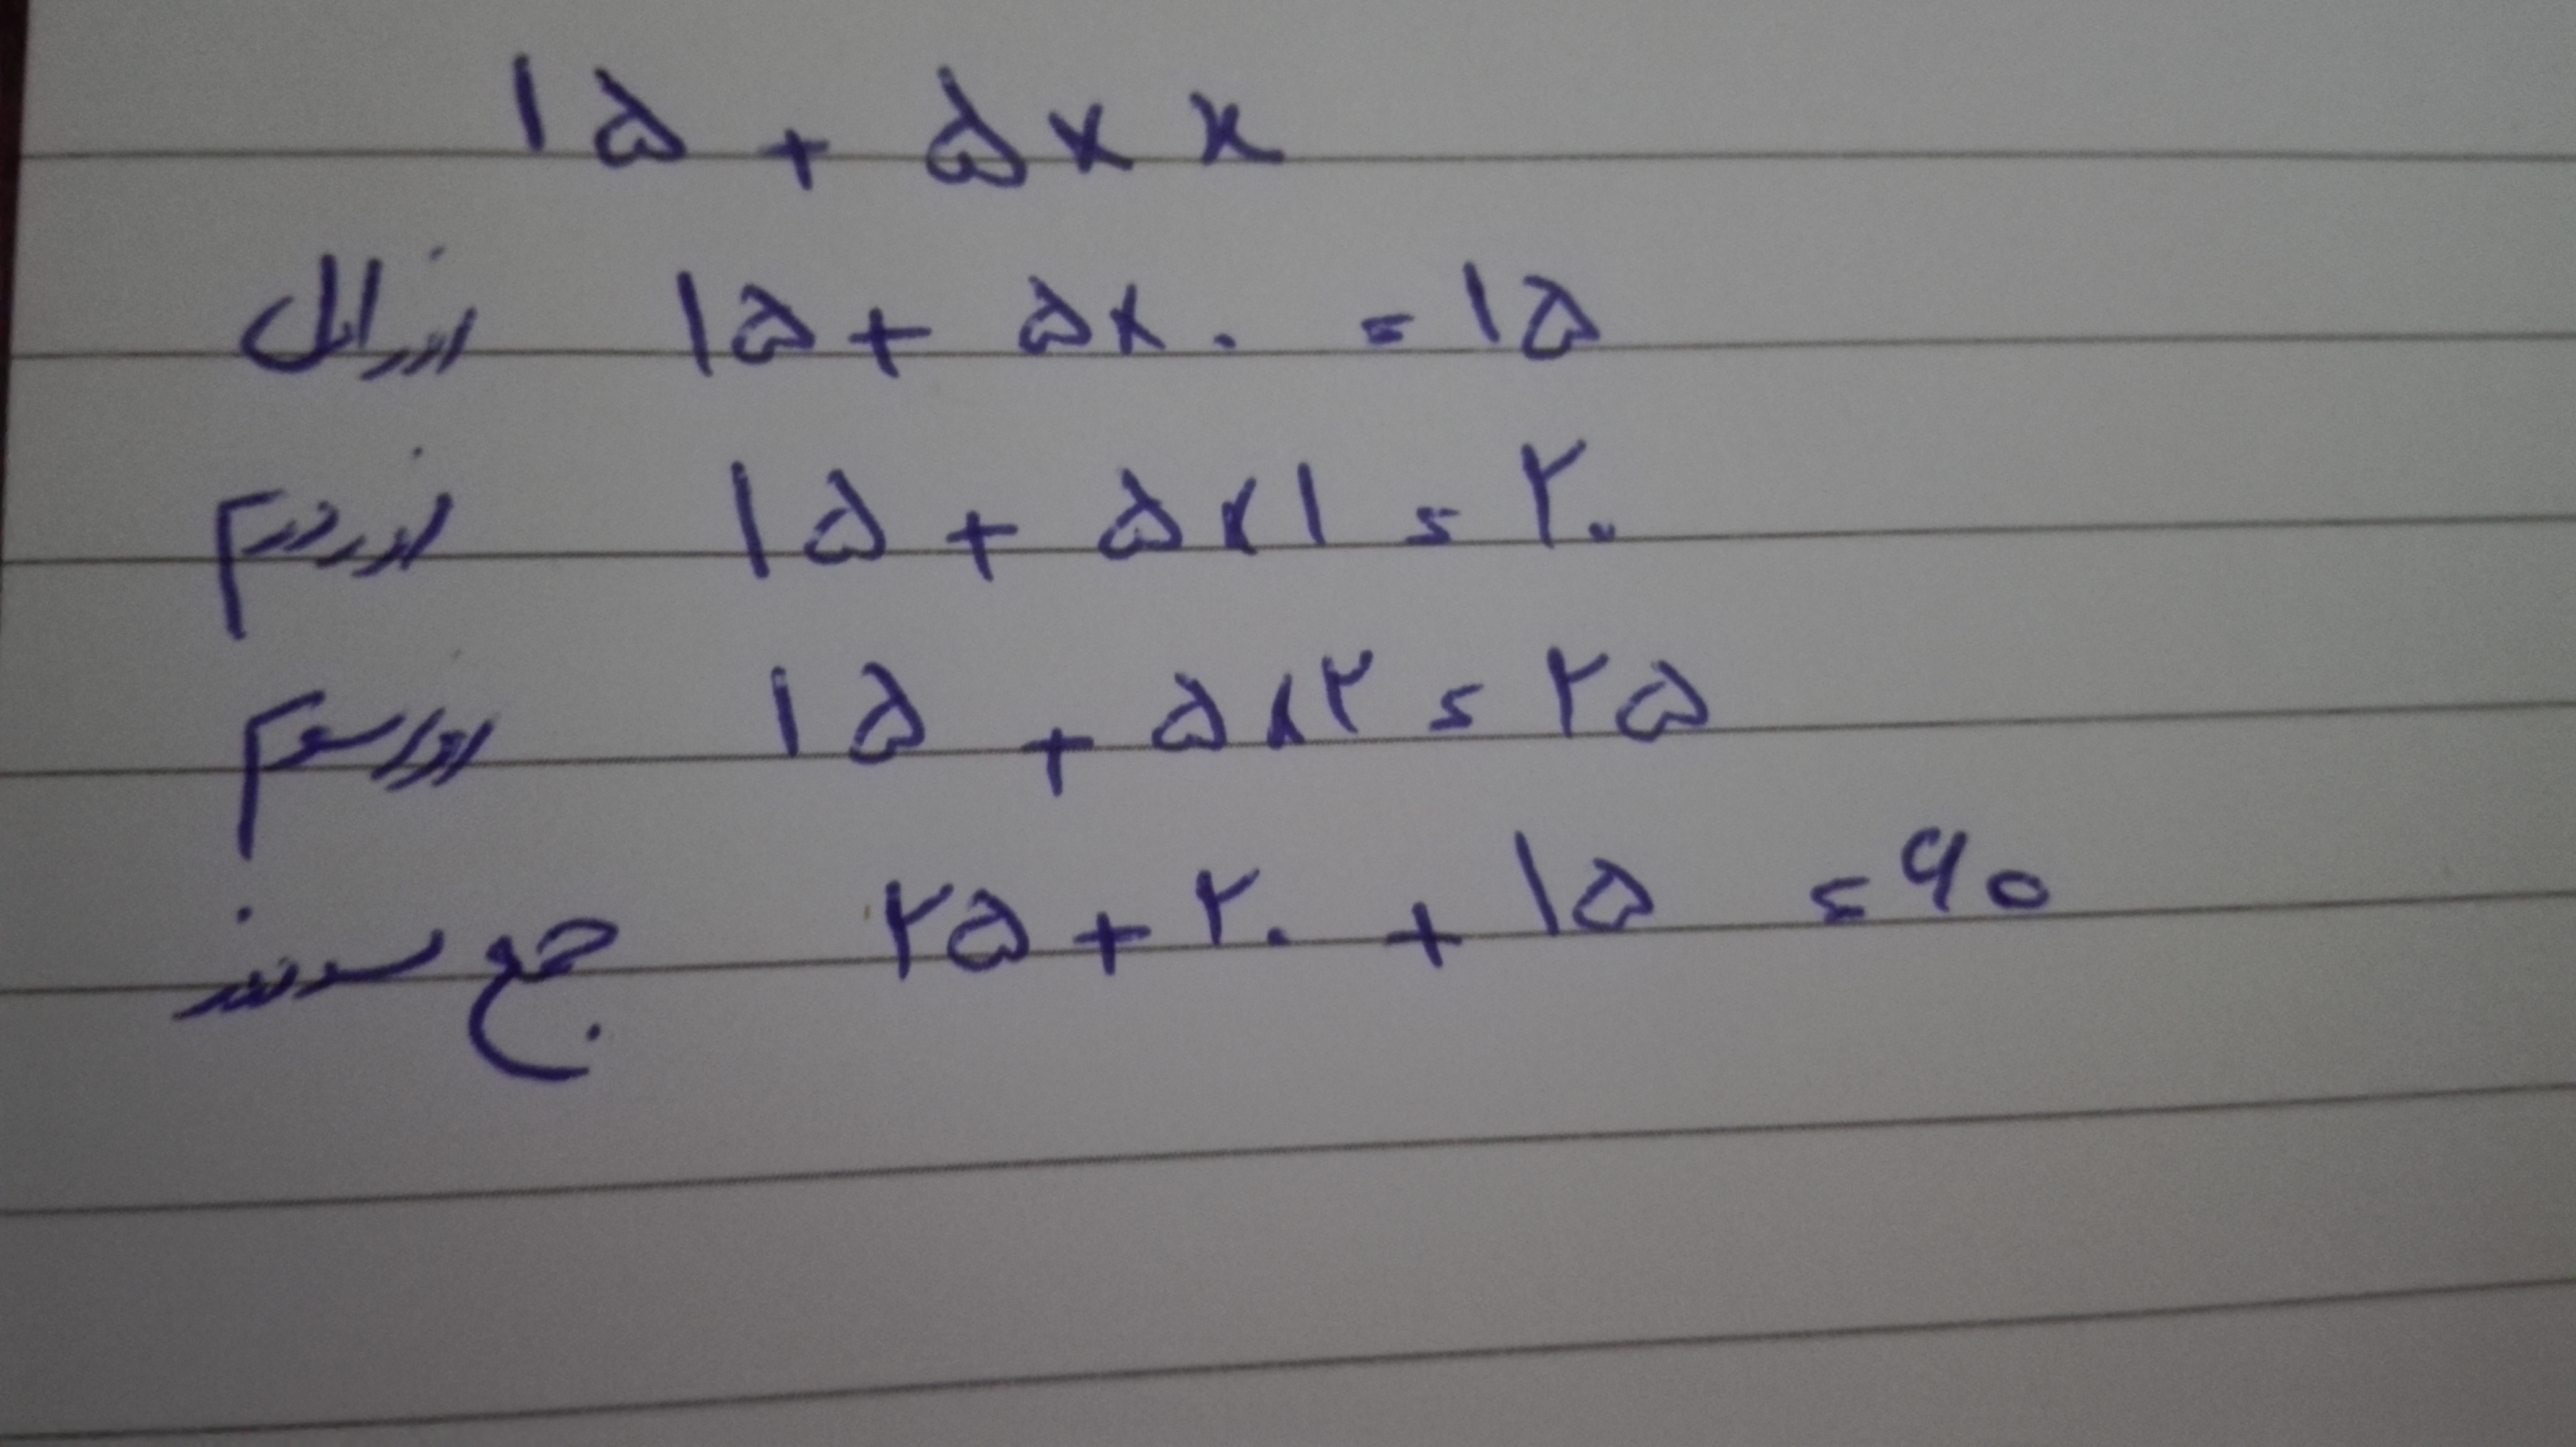 ۱۵ + ۵ × x
روز اول ۱۵ + ۵ × ۰ = ۱۵
روز دوم ۱۵ + ۵ × ۱ = ۲۰
روز سوم ۱۵ + ۵ × ۲ = ۲۵
جمع سه روز ۲۵ + ۲۰ + ۱۵ = ۶۰